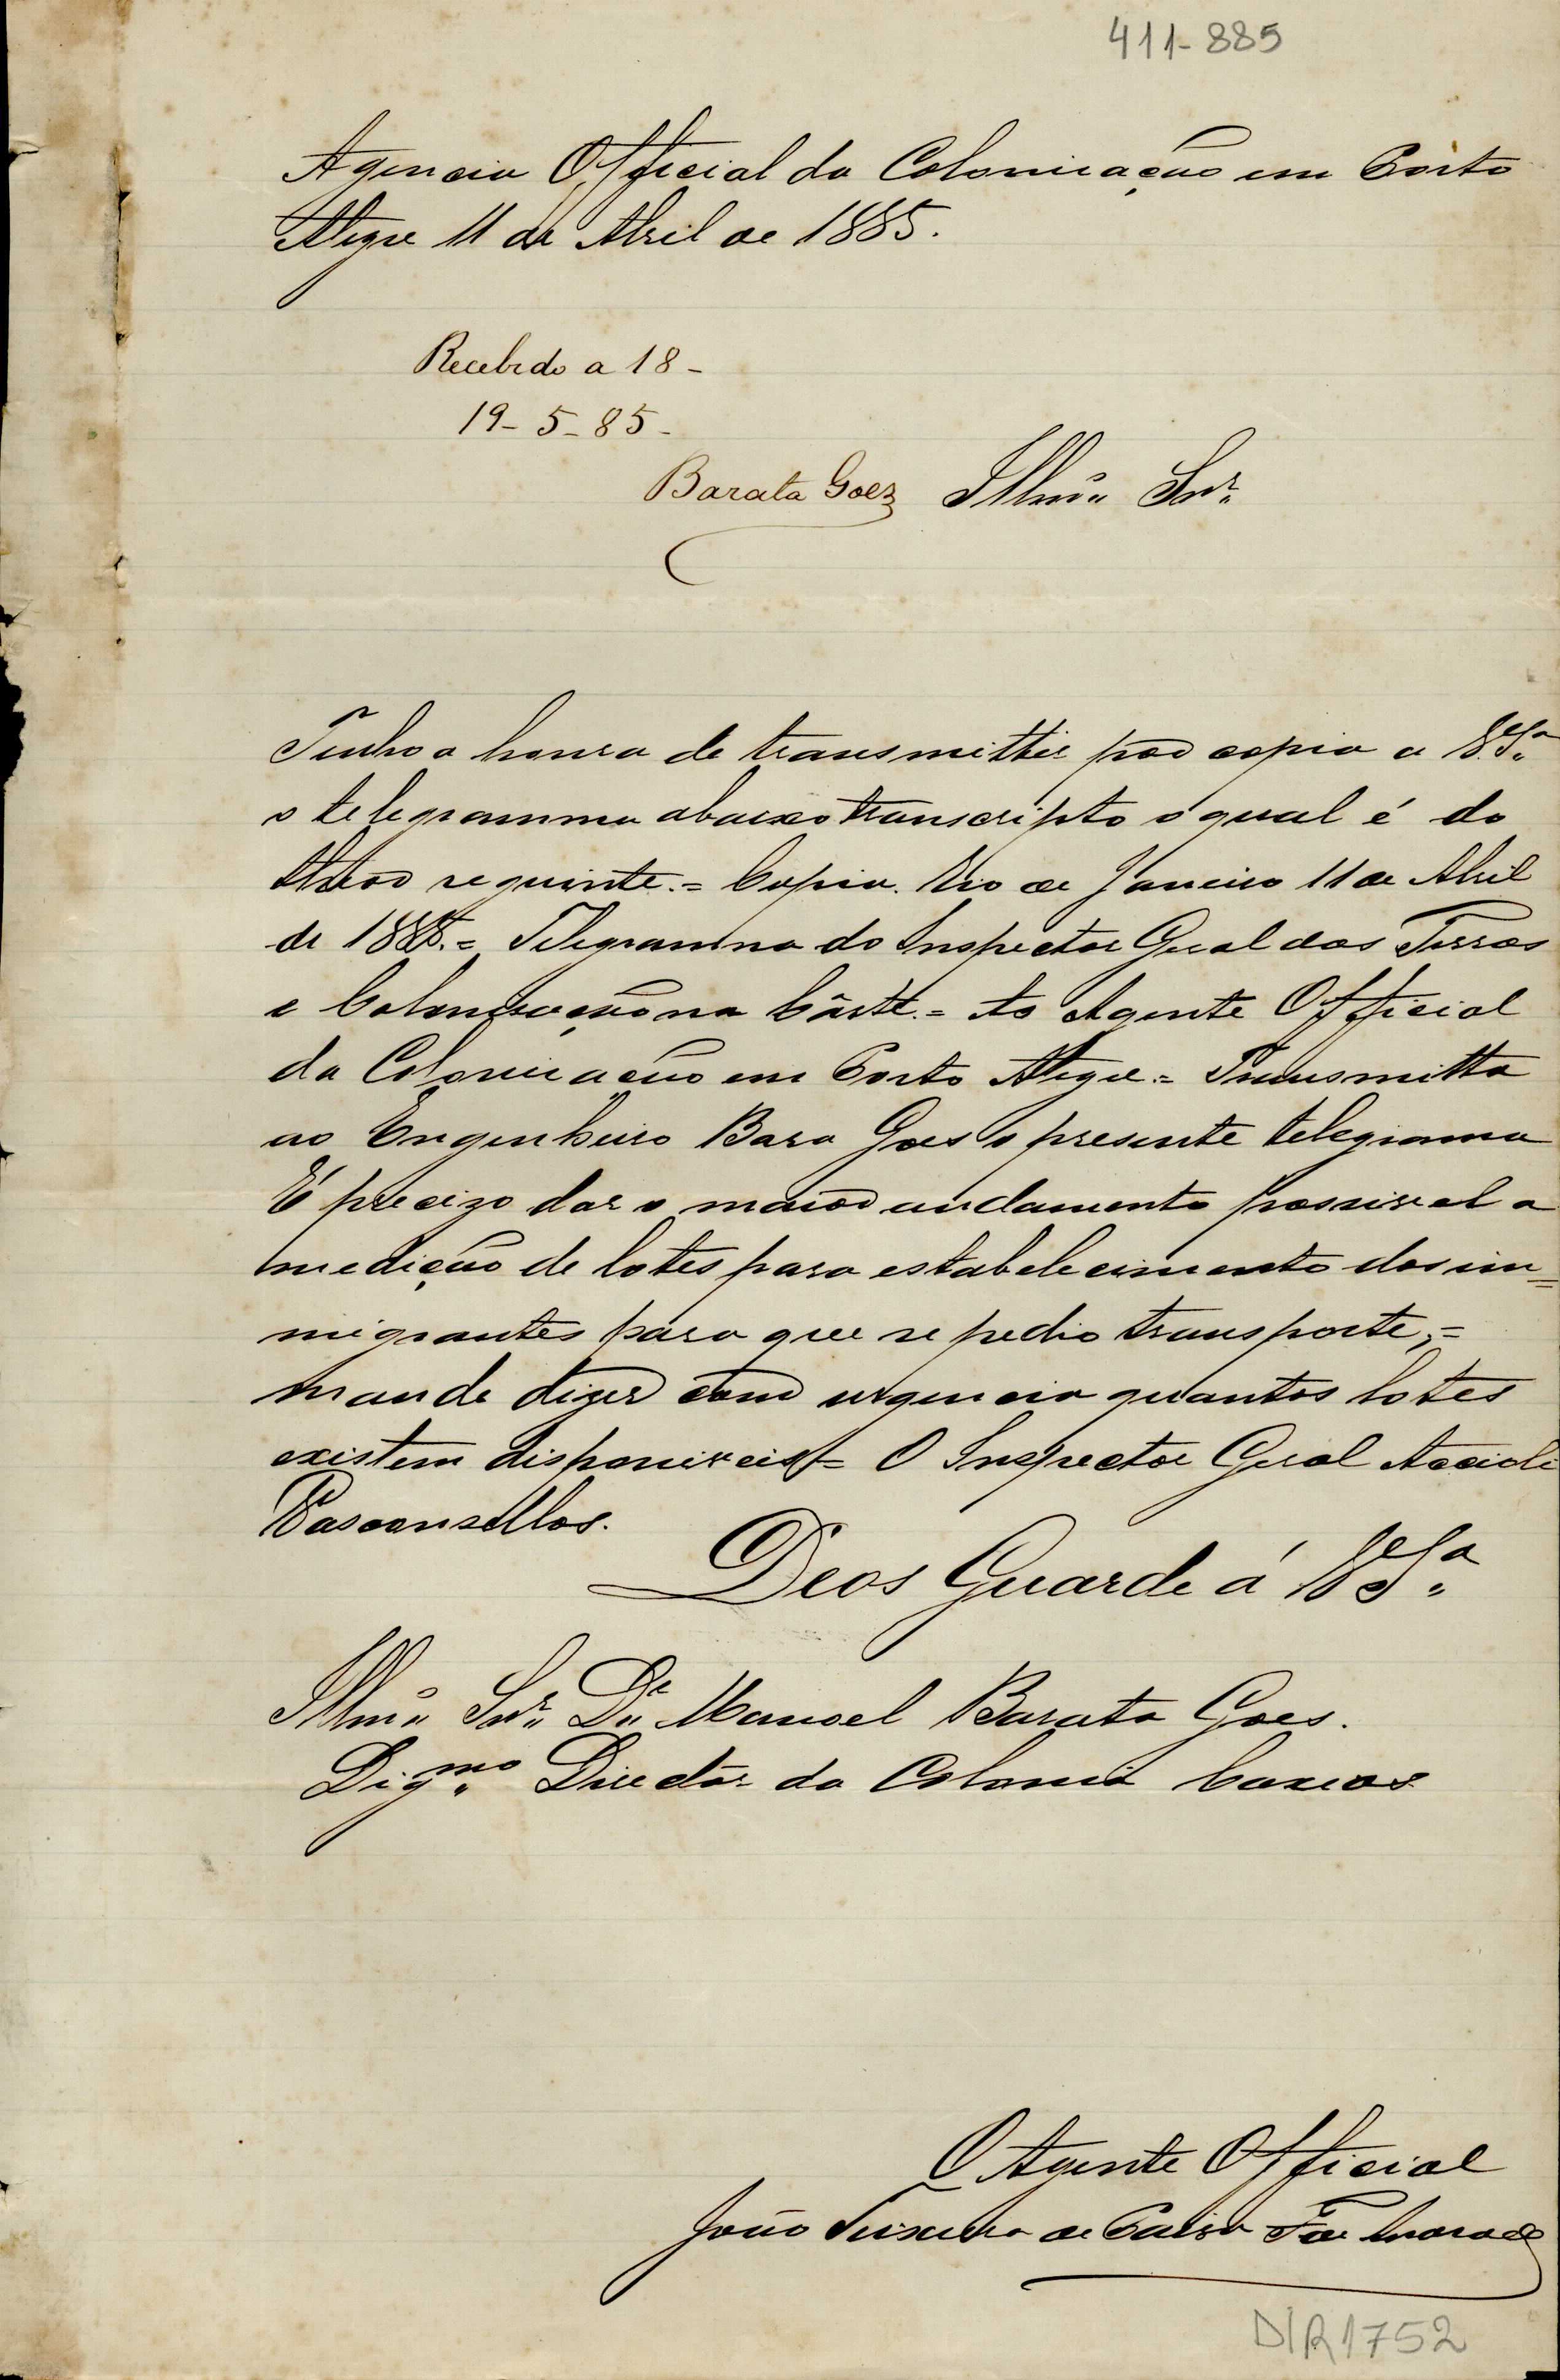 411-885
Agencia Official da Colonisação em Porto
Alegre 11 de Abril de 1885.
Recebido a 18 -
19 - 5 - 85 -
Barata Goez Illmº Snr.
Tenho a honra de transmittir por copia a V.Sª
o telegramma abaixo transcripto o qual é do
theor seguinte. = Copia. Rio de Janeiro 11 de Abril
de 1885. = Telegramma do Inspector Geral das Terras
e Colonisação na Côrte. = Ao Agente Official
da Colonisação em Porto Alegre = Transmitta
ao Engenheiro Bara Goes o presente telegramma
É precizo dar o maior andamento possivel a
medição de lotes para estabelecimento dos im=
migrantes para que se pedio transporte, =
mande dizer com urgencia quantos lotes
existem disponiveis = O Inspector Geral Accioli
Vasconsellos.
Deos Guarde á V.Sª
Illmº Snr. Dr. Manoel Barata Goes.
Digmº Director da Colonia Caxias
O Agente Official
João Teixeira de
DIR1752